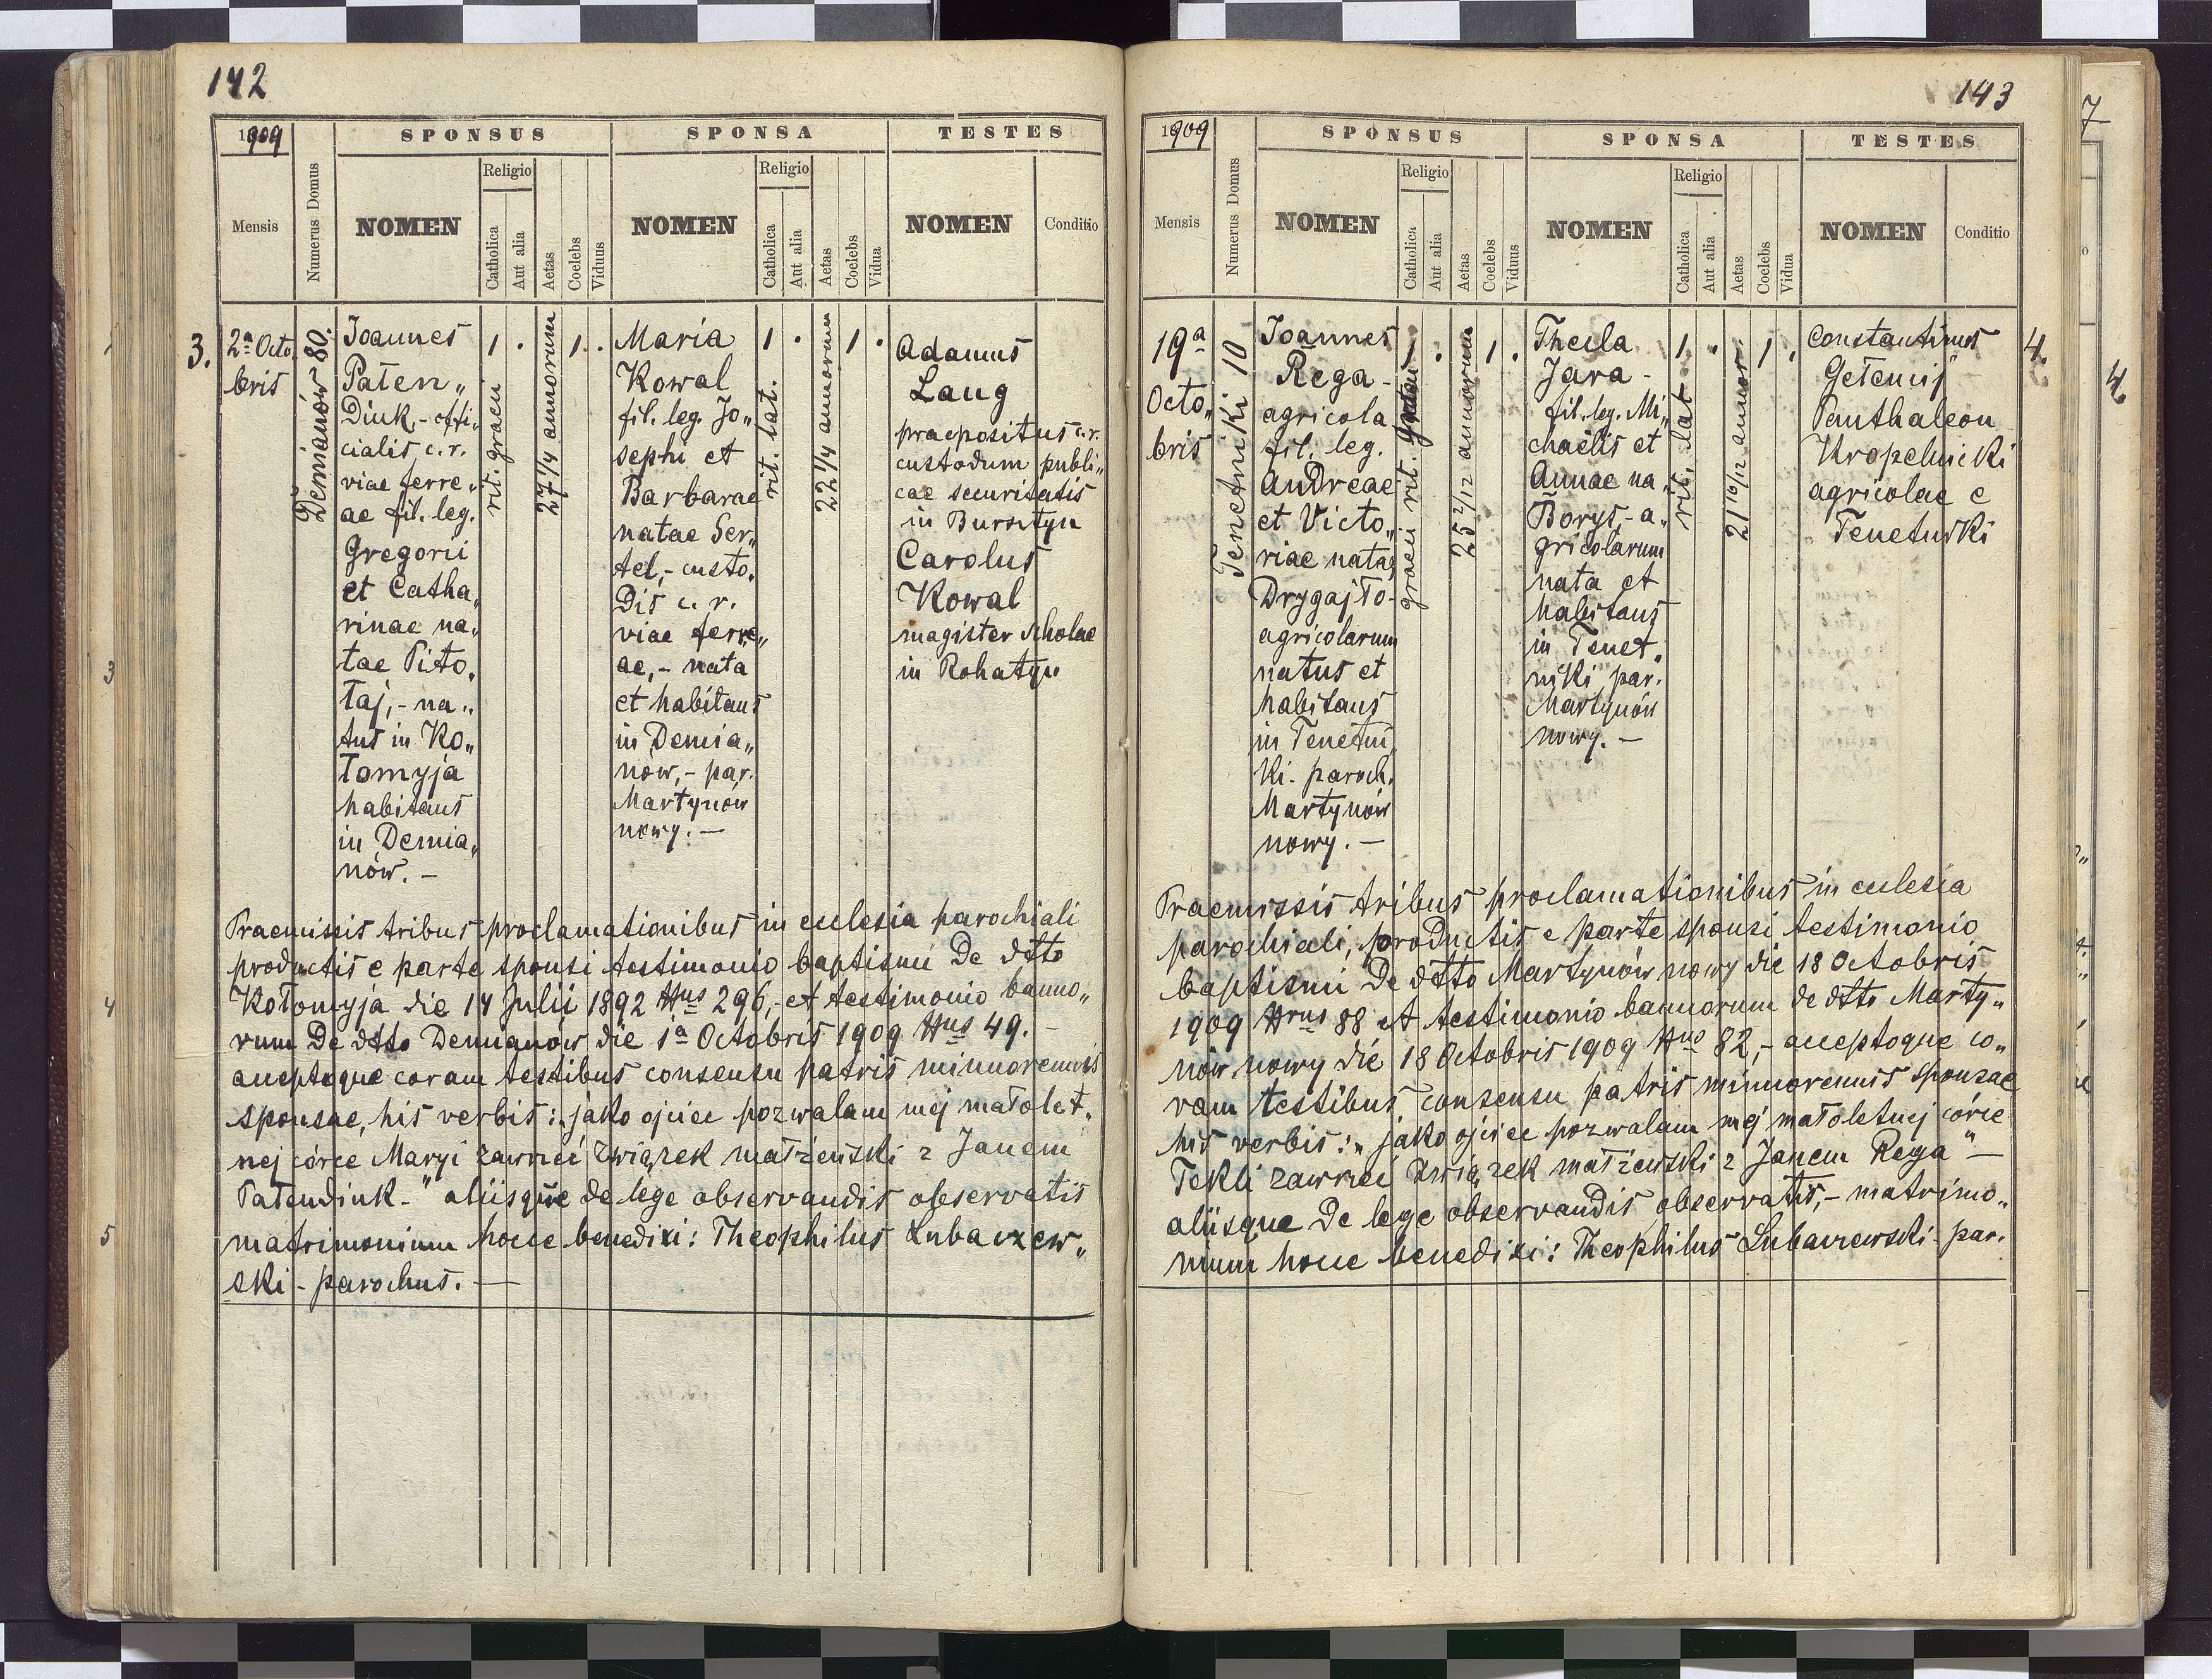 142
1909
SPONSUS
SPONSA
TESTES
Mensis
Numerus Domus
NOMEN
Religio
Catholica
Aut alia
Aetas
Coelebs
Viduus
NOMEN
Religio
Catholica
Aut alia
Aetas
Coelebs
Vidua
NOMEN
Conditio
3.
2a Octo
bris
Demianów 80.
Joannes
Paten„
Diuk,- offi„
cialis c. r.
viae ferre„
ae fil. leg.
Gregorii
et Catha„
rinae na„
tae Pito„
łaj,- na„
tus in Ko„
łomyja
habitans
in Demia„
nów. -
1
rit. graeci
.
27 1/4 annorum
1
.
Maria
Kowal
fil. leg. Jo„
sephi et
Barbarae
natae Ser„
tel,- custo„
dis c. r.
viae ferre„
ae,- nata
et habitans
in Demia„
nów,- par.
Martynów
nowy. -
1
rit. lat.
.
22 1/4 annorum
1
.
Adamus
Lang
praepositus c. r.
custodum publi„
cae securitatis
in Bursztyn
Carolus
Kowal
magister scholae
in Rohatyn
Praemissis tribus proclamationibus in ecclesia parochiali
productis e parte sponsi testimonio baptismi de dtto
Kołomyja die 14 Julii 1892 Nus 296,- et testimonio banno„
rum de dtto Demianów die 1a Octobris 1909 Nus 49. -
acceptoque coram testibus consensu patris minorennis
sponsae, his verbis: „jako ojciec pozwalam mej małolet„
nej córce Maryi zawrzeć związek małżeński z Janem
Patendiuk-" aliisque de lege observandis observatis
matrimonium hocce benedixi: Theophilus Lubaczew„
ski - parochus. -
143
1909
SPONSUS
SPONSA
TESTES
Mensis
Numerus Domus
NOMEN
Religio
Catholica
Aut alia
Aetas
Coelebs
Viduus
NOMEN
Religio
Catholica
Aut alia
Aetas
Coelebs
Vidua
NOMEN
Conditio
19a
Octo„
bris
Tenetniki 10
Joannes
Rega -
agricola
fil. leg.
Andreae
et Victo„
riae natae
Drygajło -
agricolarum
natus et
habitans
in Tenetni
ki - paroch.
Martynów
nowy. -
1
graeci rit.
.
25 2/12 annorum
1
.
Thecla
Jara -
fil. leg. Mi„
chaëlis et
Annae na„
Borys,- a„
gricolarum
nata et
habitans
in Tenet„
niki par.
Martynów
nowy. -
1
rit. lat
.
21 10/12 annor.
1
.
Constantinus
Panthaleon
Kropelnicki
agricolae e
Tenetniki
4.
Praemissis tribus proclamationibus in ecclesia
parochiali, productis e parte sponsi testimonio
baptismi de dtto Martynów nowy die 18 Octobris
1909 Nrus 88 et testimonio bannorum de dtto Marty„
nów nowy die 18 Octobris 1909 Nus 82,- acceptoque co„
ram testibus consensu patris minorennis sponsae
his verbis: „jako ojciec pozwalam mej małoletnej córce
Tekli zawrzeć związek małżeński z Janem Rega" -
aliisque de lege observandis observatis,- matrimo„
nium hocce benedixi: Theophilus Lubaczewski - par.
3
4
5
7
4